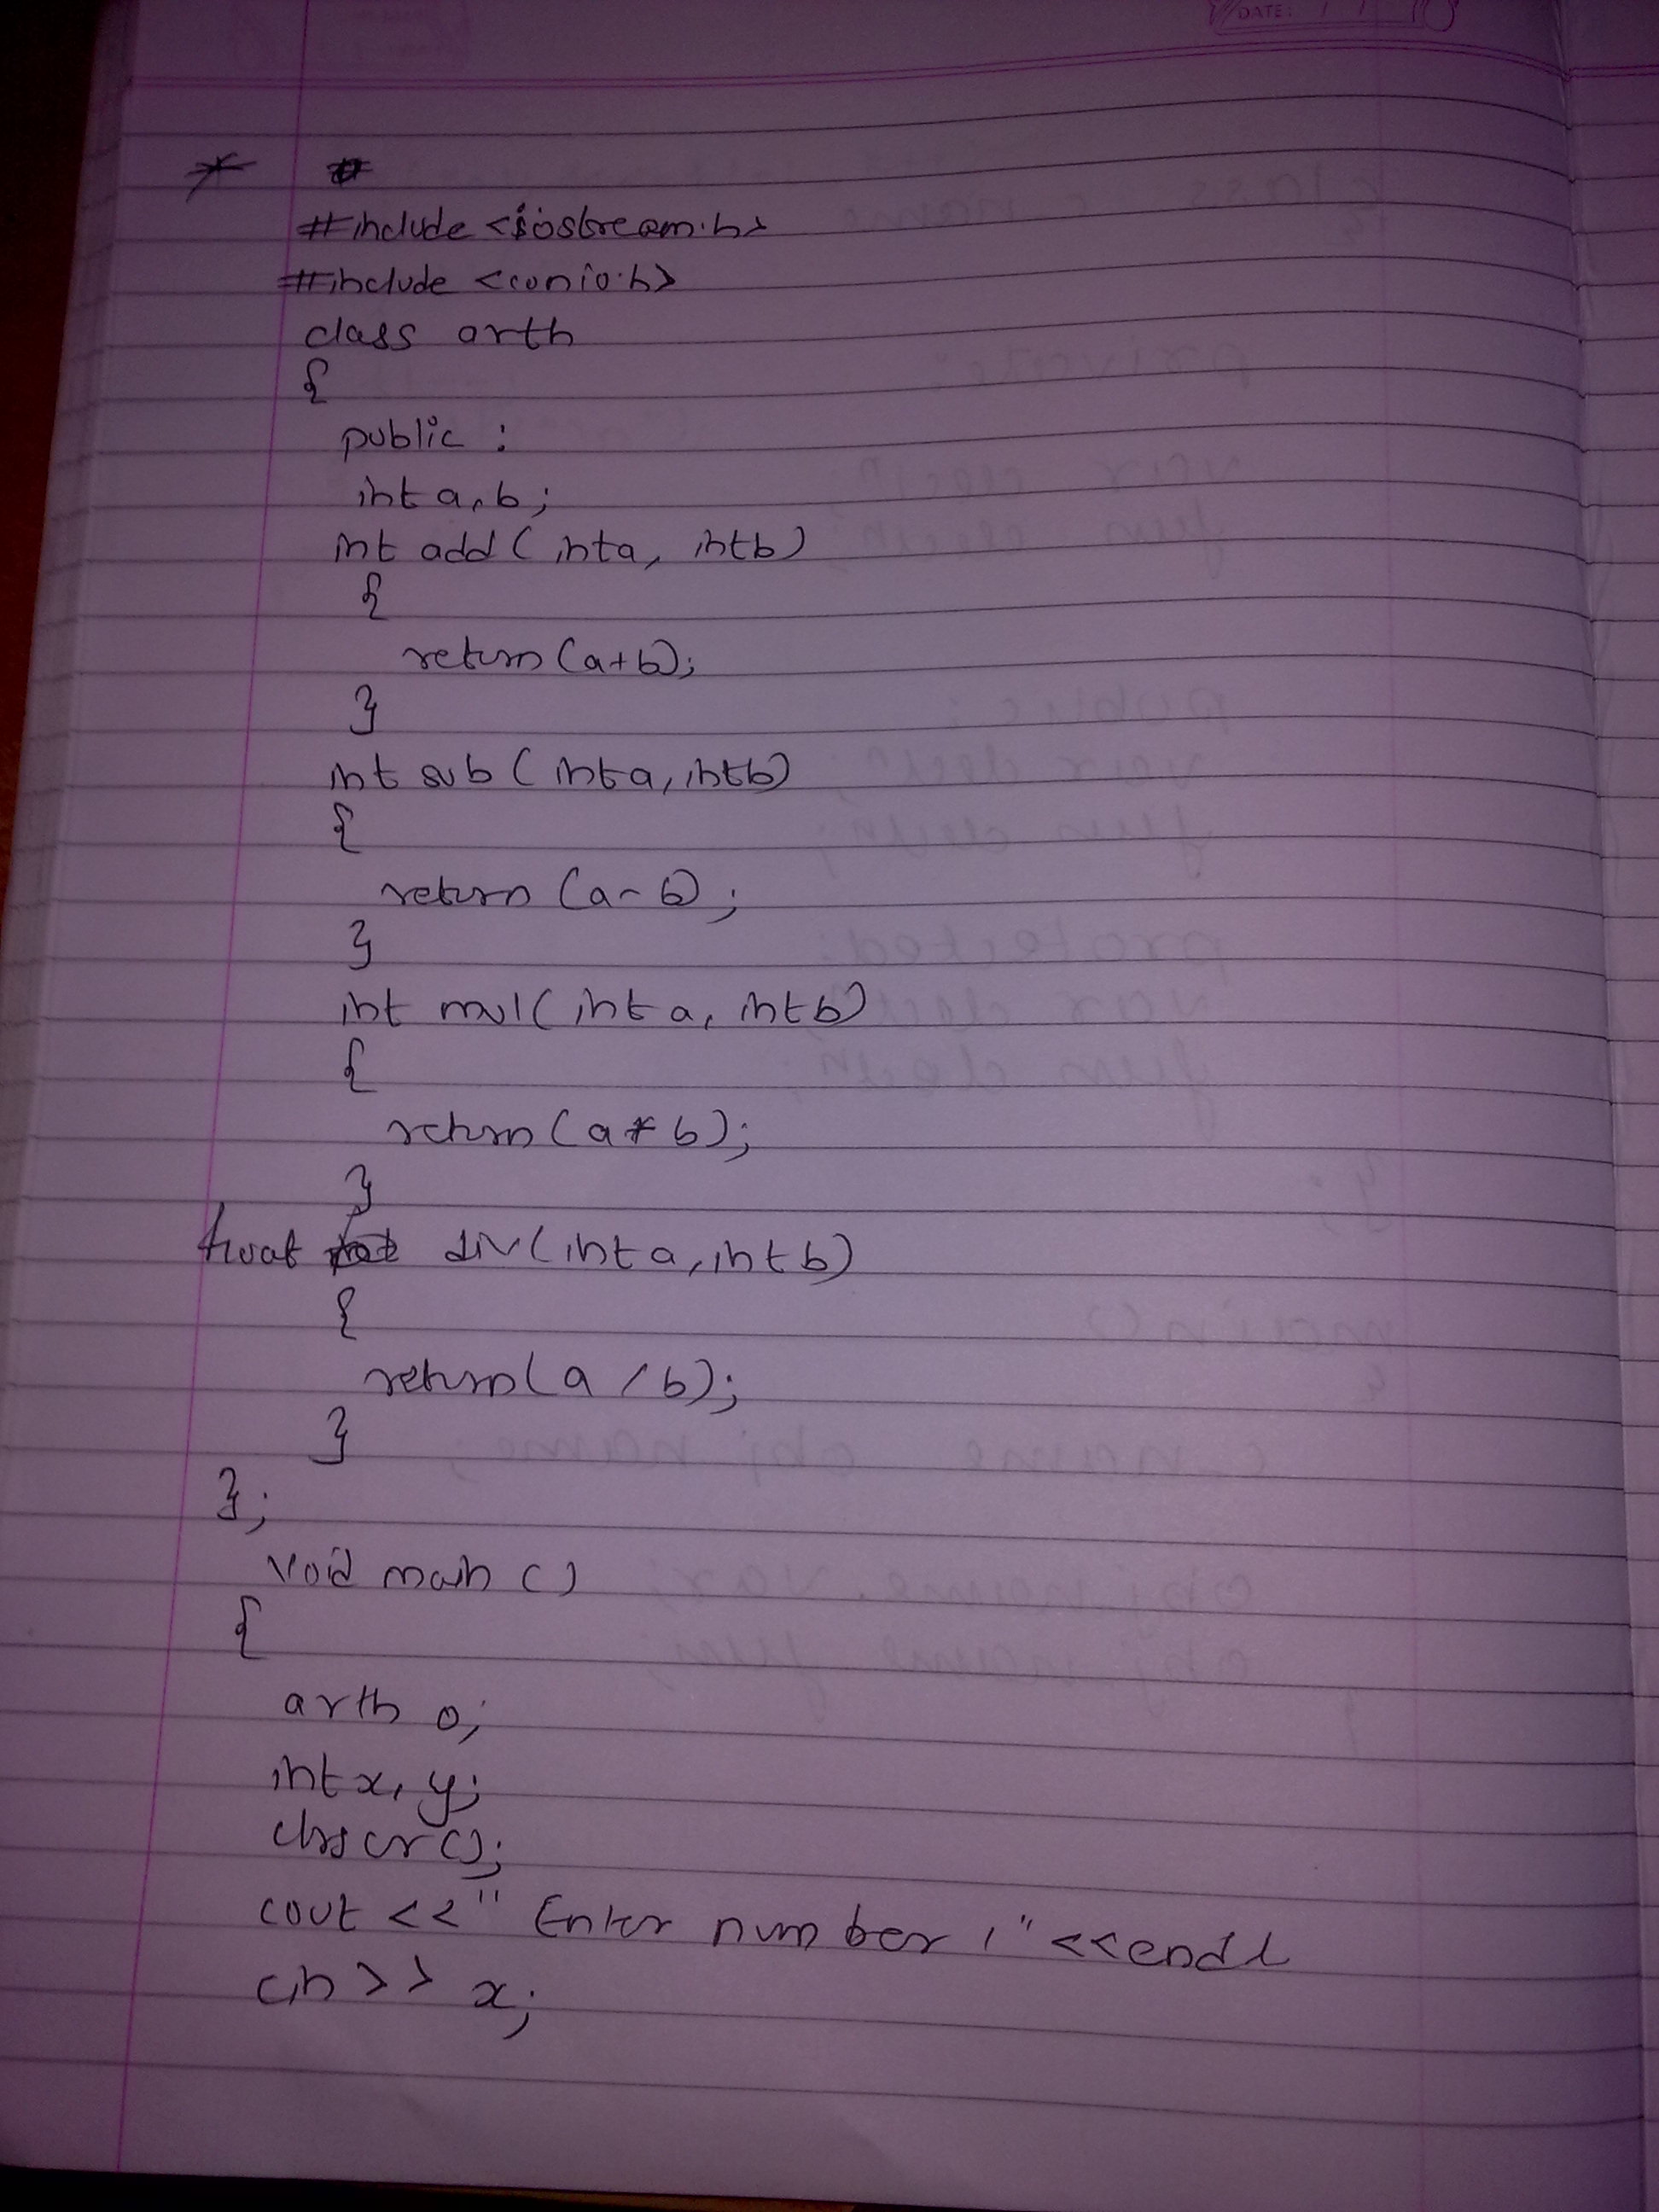 DATE: / /
* #
#include <iostream.h>
#include <conio.h>
class arth
{
public :
int a, b;
int add ( int a, int b)
{
return (a+b);
}
int sub ( int a, int b)
{
return (a-b);
}
int mul ( int a, int b)
{
return (a * b);
}
float div( int a, int b)
{
return (a / b);
}
};
void main ()
{
arth o;
int x, y;
clrscr ();
cout << " Enter number 1" <<endl
cin >> x;